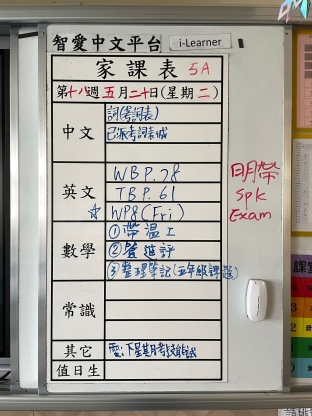 智愛中文平台
i-Learner
家課表 5A
第十八週五月二十日(星期二)
中文
詞(考詞表)
已派考詞表
英文
WBP.78
TBP.61
☆ WP8(Fri)
數學
①帶溫工
②進評
③整理筆記(五年級課題)
常識
其它
下星期考
值日生
明帶
Spk
Exam